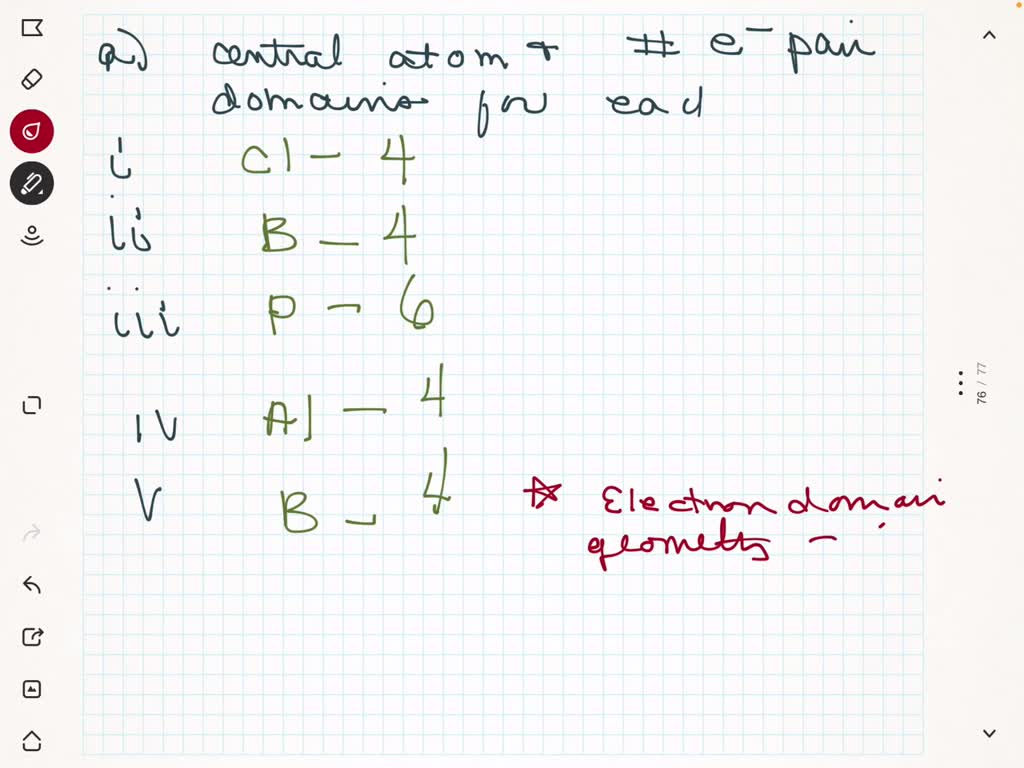 a) central atom + # e⁻ pair
domains for each
i Cl - 4
ii B - 4
iii P - 6
iv Al - 4
v B - 4
☆ Electron domain
geometry -
76 / 77